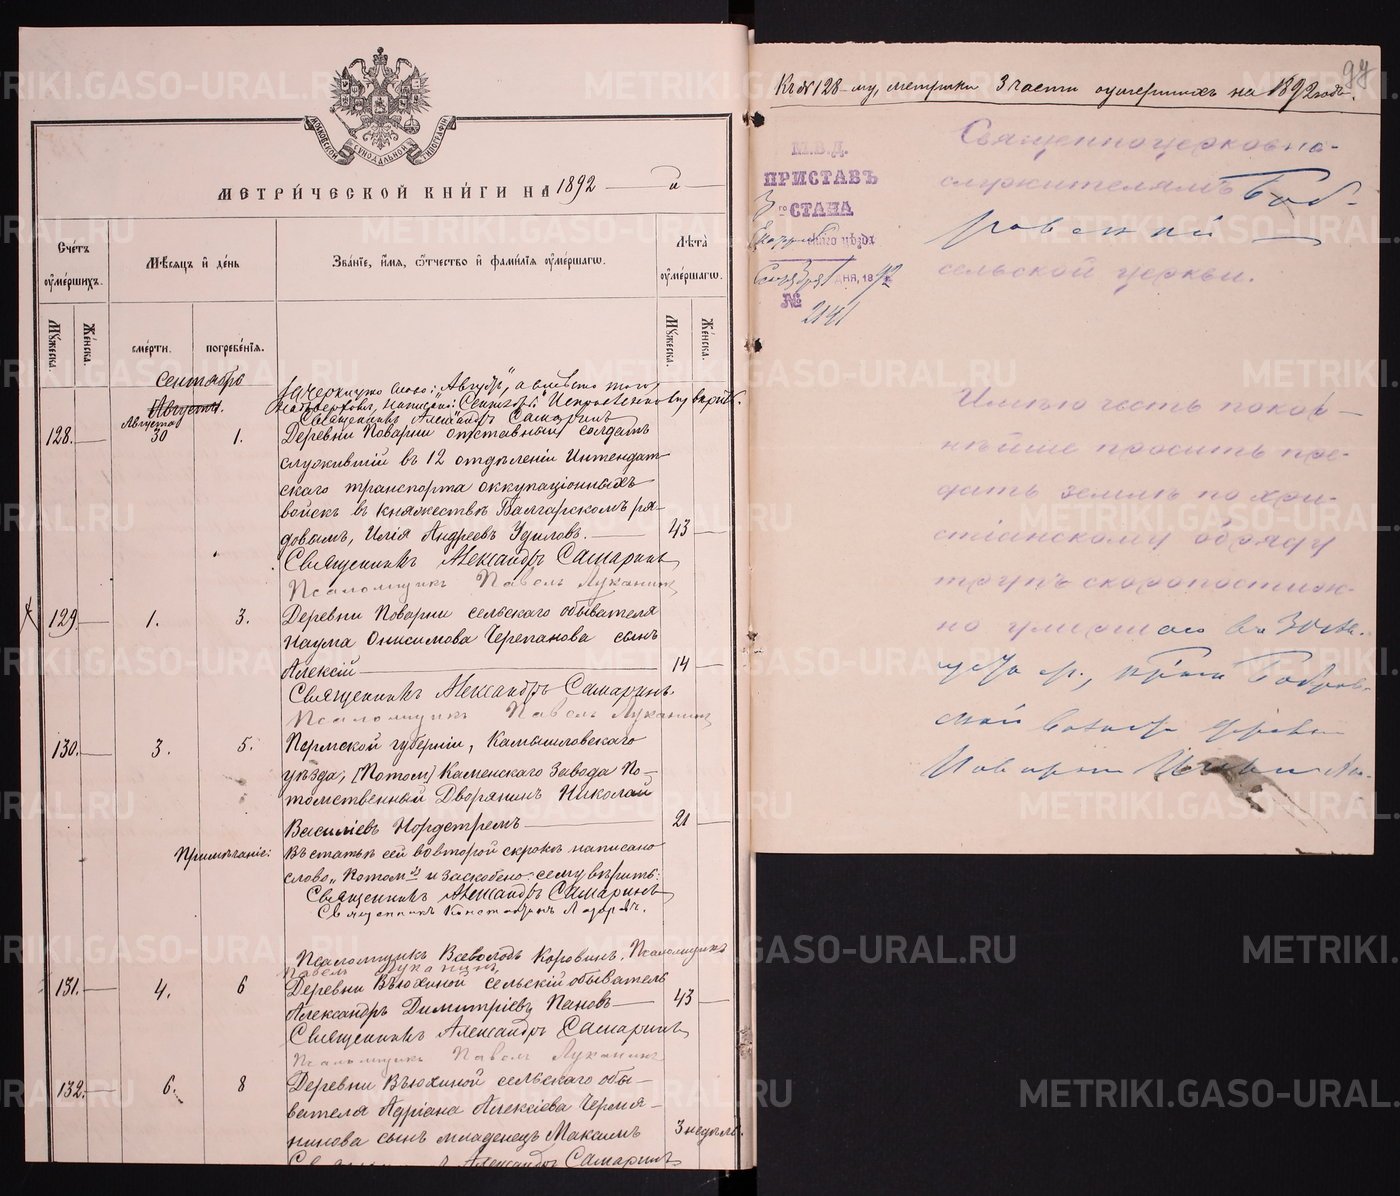 МОСКОВСКОЙ СѴНОДАЛЬНОЙ ТИПОГРАФІИ
МЕТРИ́ЧЕСКОЙ КНИ́ГИ НА 1892 г
Сче́тъ оу҆ме́ршихъ.
Мѣ́сяцъ и҆ де́нь
Зва́ніе, и҆́мя, ѻ҆́тчество и҆ фами́лія оу҆ме́ршагѡ.
Лѣ́та оу҆ме́ршагѡ.
Му́жеска.
Же́нска.
сме́рти.
погребе́нія.
Му́жеска.
Же́нска.
Сентябрь
Августъ.
Зачеркнуто слово: "Августъ", а вмѣсто того
написано: Сентябрь. Исправленному вѣрить.
Священникъ Александръ Самаринъ
128. Августа 30 1. Деревни Поварни отставный солдатъ
служившій въ 12 отдѣленіи Интендант-
скаго транспорта оккупаціонныхъ
войскъ въ княжествѣ Балгарскомъ ря-
довымъ, Илія Андреевъ Удиловъ. 43
Священникъ Александръ Самаринъ
Псаломщикъ Павелъ Луканинъ
129. 1. 3. Деревни Поварни сельскаго обывателя
Наума Онисимова Черепанова сынъ
Алексій 14
Священникъ Александръ Самаринъ.
Псаломщикъ Павелъ Луканинъ
130. 3. 5. Пермской губерніи, Камышловскаго
уѣзда, [Потом] Каменскаго Завода По-
томственный Дворянинъ Николай
Василіевъ Нордстремъ 21
Примѣчаніе: Въ статьѣ сей во второй строкѣ написано
слово "Потом" и заскоблено сему вѣрить:
Священникъ Александръ Самаринъ
Священникъ Константинъ
Псаломщикъ Всеволодъ Коровинъ. Псаломщикъ
Павелъ Луканинъ
131. 4. 6 Деревни Вьюхиной сельскій обыватель
Александръ Димитріевъ Пановъ 43
Священникъ Александръ Самаринъ
Псаломщикъ Павелъ Луканинъ
132. 6. 8 Деревни Вьюхиной сельскаго обы-
вателя Адріана Алексіева Чермя-
нинова сынъ младенецъ Максимъ 3 недѣль.
Александръ Самаринъ
94
Къ № 128-му, метрики 3 части умершихъ на 1892 годъ.
М.В.Д.
ПРИСТАВЪ
3 го СТАНА
уѣзда
дня, 1892
№ 2141
Священноцерковно-
служителямъ Боб-
ровской
сельской церкви.
Имѣю честь покор-
нѣйше просить пре-
дать землѣ по хри-
стіанскому обряду
трупъ скоропостиж-
но умершаго 30 Ав-
густа кр. Бобров-
ской волости деревни
Поварни Ильи Ан-
METRIKI.GASO-URAL.RU